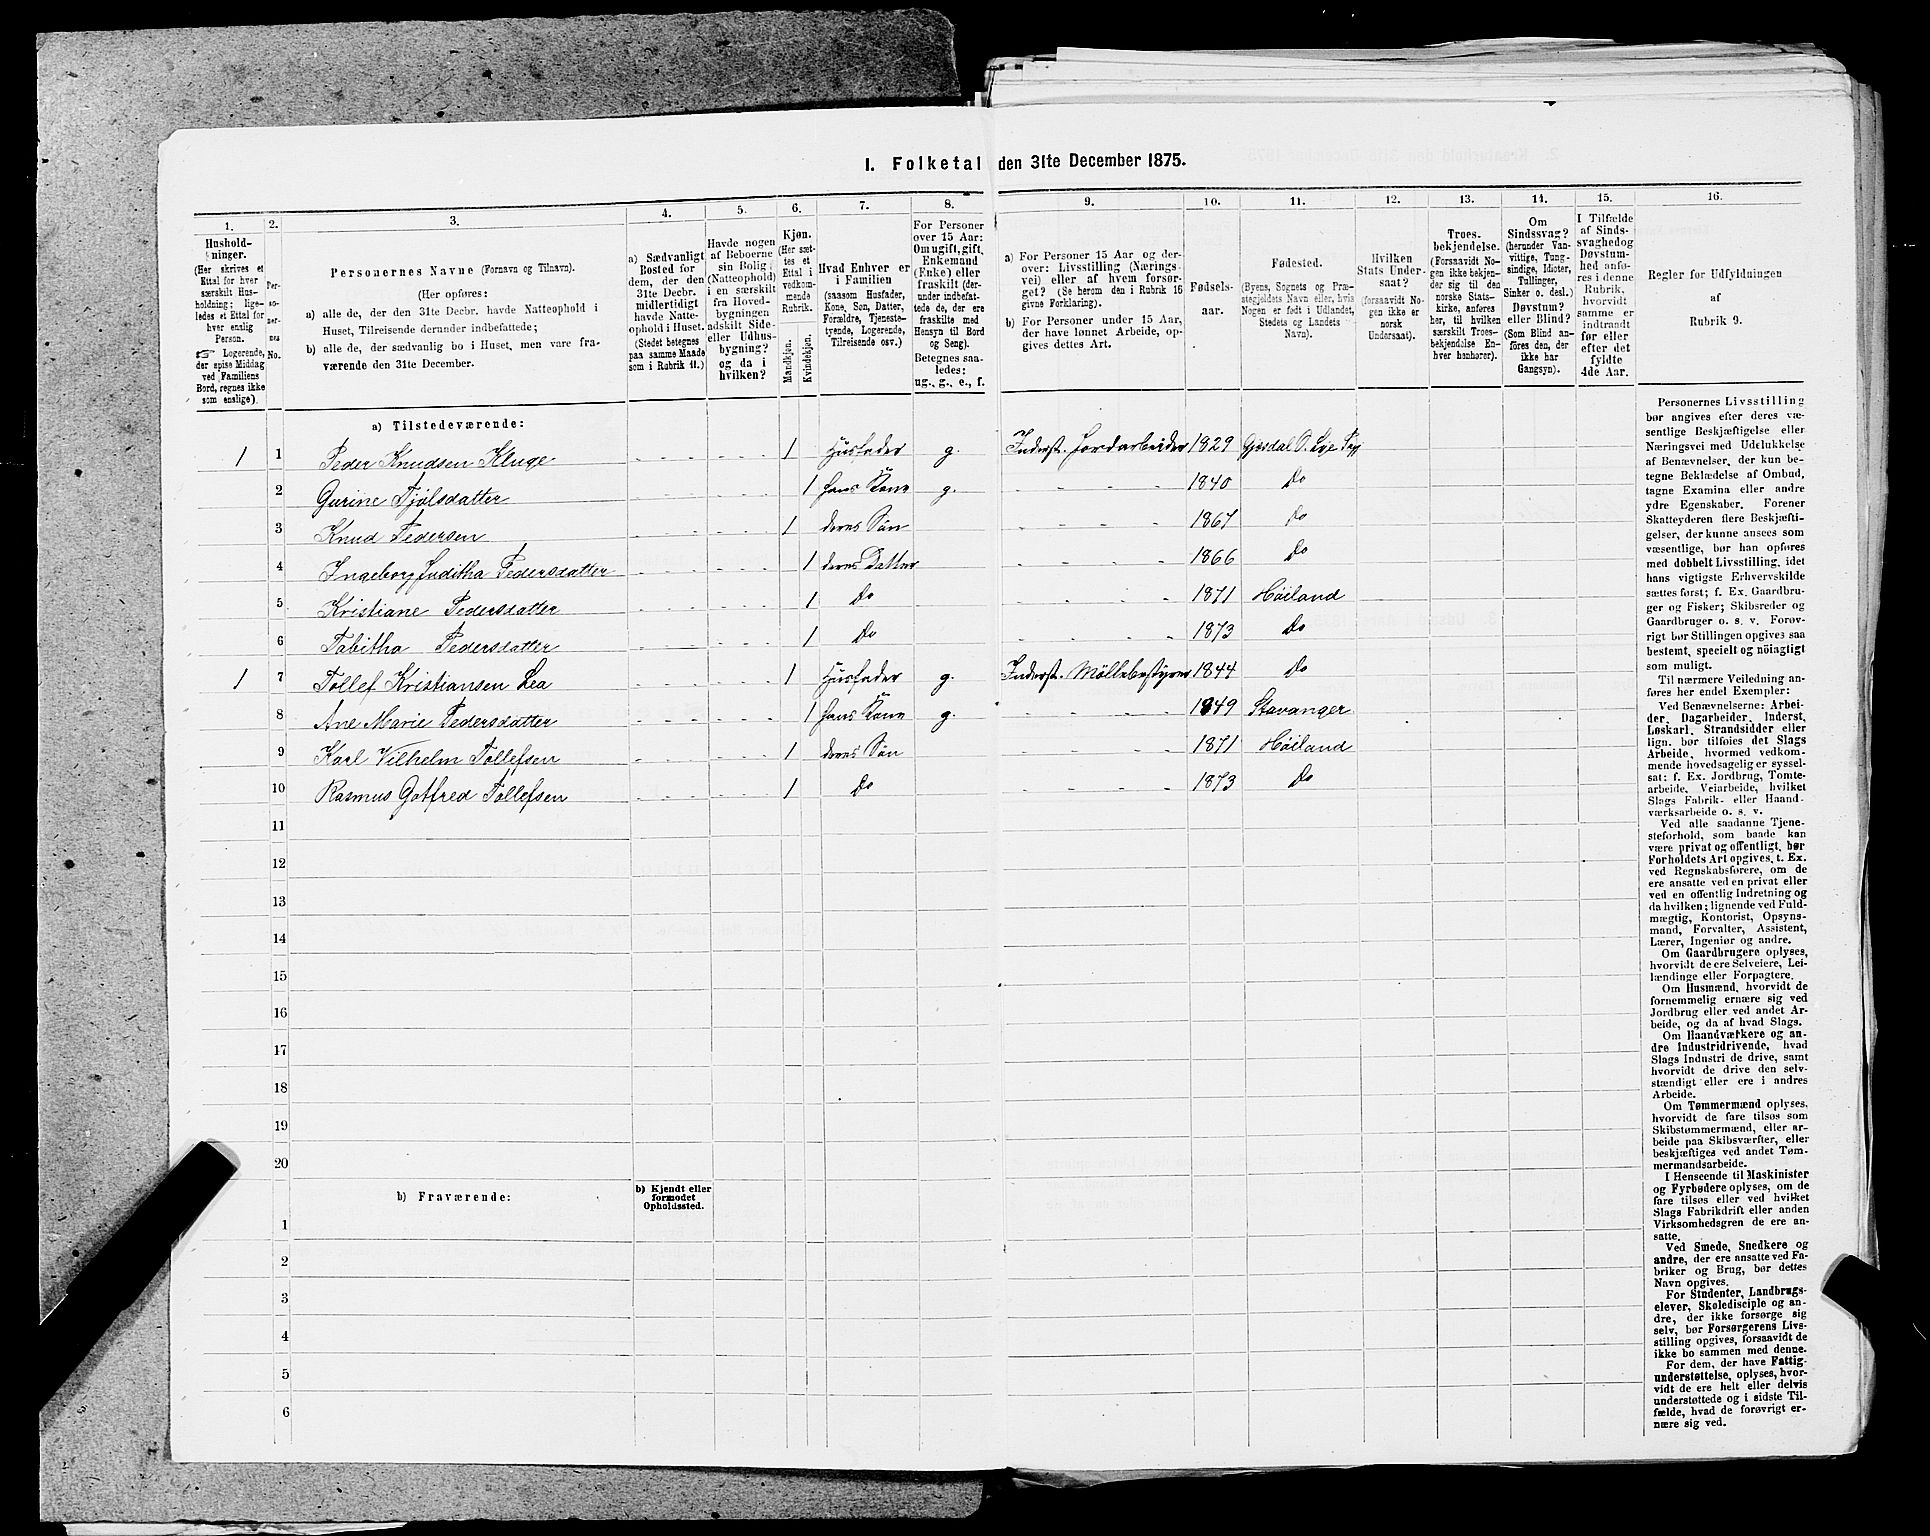 1. Folketal den 31te December 1875.
1. 2. 3. 4. 5. 6. 7. 8. 9. 10. 11. 12. 13. 14. 15. 16.
Hushold-
ninger.
(Her skrives et
Ettal for hver
særskilt Hus-
holdning; lige-
ledes et Ettal for
hver enslig
Person.
☞ Logerende,
der spise Middag
ved Familiens
Bord, regnes ikke
som enslige).
Per-
so-
ner-
nes
No.
Personernes Navne (Fornavn og Tilnavn).
(Her opføres:
a) alle de, der den 31te Decbr. havde Natteophold i
Huset, Tilreisende derunder indbefattede;
b) alle de, der sædvanlig bo i Huset, men vare fra-
værende den 31te December.
a) Sædvanligt
Bosted for
dem, der den
31te Decbr.
midlertidigt
havde Natte-
ophold i Huset.
(Stedet betegnes
paa samme Maade
som i Rubrik 11.)
Havde nogen
af Beboerne
sin Bolig
(Natteophold)
i en særskilt
fra Hoved-
bygningen
adskilt Side-
eller Udhus-
bygning?
og da i
hvilken?
Kjøn.
(Her sæt-
tes et
Ettal i
vedkom-
mende
Rubrik.
Mandkjøn.
Kvindekjøn.
Hvad Enhver er
i Familien
(saasom Husfader,
Kone, Søn, Datter,
Forældre, Tjeneste-
tyende, Logerende,
Tilreisende osv.)
For Personer
over 15 Aar:
Om ugift, gift,
Enkemand
(Enke) eller
fraskilt (der-
under indbefat-
tede de, der ere
fraskilte med
Hensyn til Bord
og Seng).
Betegnes saa-
ledes:
ug., g., e., f.
a) For Personer 15 Aar og der-
over: Livsstilling (Nærings-
vei) eller af hvem forsør-
get? (Se herom den i Rubrik 16
givne Forklaring).
b) For Personer under 15 Aar,
der have lønnet Arbeide, op-
gives dettes Art.
Fødsels-
aar.
Fødested.
(Byens, Sognets og Præ-
stegjeldets Navn eller, hvis
Nogen er født i Udlandet,
Stedets og Landets
Navn).
Hvilken
Stats Under-
saat?
(forsaavidt No-
gen ikke er
norsk
Undersaat).
Troes-
bekjendelse.
(Forsaavidt No-
gen ikke bekjen-
der sig til den
norske Stats-
kirke, anføres
her, til hvilken
særskilt Troes-
bekjendelse En-
hver henhører).
Om
Sindssvag?
(herunder Van-
vittige, Tung-
sindige, Idioter,
Tullinger,
Sinker o. desl.)
Døvstum?
eller Blind?
(Som Blind an-
føres den, der
ikke har
Gangsyn).
I Tilfælde
af Sinds-
svaghedog
Døvstum-
hed anfø-
res i denne
Rubrik,
hvorvidt
samme er
indtraadt
før eller
efter det
fyldte
4de Aar.
Regler for Udfyldningen
af
Rubrik 9.
a) Tilstedeværende:
1 1 Peder Knudsen Kluge 1 Husfader g. Inderst. Jordarbeider 1829 Gjesdal O. Lye
2 Gurine Tjølsdatter 1 hans Kone g. 1840 Do
3 Knud Pedersen 1 deres Søn 1867 Do
4 Ingeborg Juditha Pedersdatter 1 deres Datter 1866 Do
5 Kristiane Pedersdatter 1 Do 1871 Høiland
6 Tabitha Pedersdatter 1 Do 1873 Do
1 7 Tollef Kristiansen Lea 1 Husfader g. Inderst. Møllebestyrer 1844 Do
8 Ane Marie Pedersdatter 1 hans Kone g. 1849 Stavanger
9 Karl Vilhelm Tollefsen 1 deres Søn 1871 Høiland
10 Rasmus Gotfred Tollefsen 1 Do 1873 Do
11
12
13
14
15
16
17
18
19
20
b) Fraværende:
b) Kjendt eller
formodet
Opholdssted.
1
2
3
4
5
6
Personernes Livsstilling
bør angives efter deres væ-
sentlige Beskjæftigelse eller
Næringsvei med Udelukkelse
af Benævnelser, der kun be-
tegne Beklædelse af Ombud,
tagne Examina eller andre
ydre Egenskaber. Forener
Skatteyderen flere Beskjæfti-
gelser, der kunne ansees som
væsentlige, bør han opføres
med dobbelt Livsstilling, idet
hans vigtigste Erhvervskilde
sættes først; f. Ex. Gaardbru-
ger og Fisker; Skibsreder og
Gaardbruger o. s. v. Forøv-
rigt bør Stillingen opgives saa
bestemt, specielt og nöiagtigt
som muligt.
Til nærmere Veiledning an-
føres her endel Exempler:
Ved Benævnelserne: Arbei-
der, Dagarbeider, Inderst,
Løskarl, Strandsidder eller
lign. bør tilføies det Slags
Arbeide, hvormed vedkom-
mende hovedsagelig er syssel-
sat: f. Ex. Jordbrug, Tomte-
arbeide, Veiarbeide, hvilket
Slags Fabrik- eller Haand-
værksarbeide o. s. v.
Ved alle saadanne Tjene-
steforhold, som baade kan
være privat og offentligt, bør
Forholdets Art opgives, t. Ex.
ved Regnskabsførere, om de
ere ansatte ved en privat eller
ved en offentlig Indretning og
da hvilken; lignende ved Fuld-
mægtig, Kontorist, Opsyns-
mand, Forvalter, Assistent,
Lærer, Ingeniør og andre.
Om Gaardbrugere oplyses,
hvorvidt de ere Selveiere, Lei-
lændinge eller Forpagtere.
Om Husmænd, hvorvidt de
fornemmelig ernære sig ved
Jordbrug eller ved andet Ar-
beide, og da af hvad Slags.
Om Haandværkere og an-
dre Industridrivende, hvad
Slags Industri de drive, samt
hvorvidt de drive den selv-
stændigt eller ere i andres
Arbeide.
Om Tømmermænd oplyses,
hvorvidt de fare tilsøs som
Skibstømmermænd, eller ar-
beide paa Skibsværfter, eller
beskjæftiges ved andet Tøm-
mermandsarbeide.
I Henseende til Maskinister
og Fyrbødere oplyses, om de
fare tilsøs eller ved hvilket
Slags Fabrikdrift eller anden
Virksomhedsgren de ere an-
satte.
Ved Smede, Snedkere og
andre, der ere ansatte ved Fa-
briker og Brug, bør dettes
Navn opgives.
For Studenter, Landbrugs-
elever, Skoledisciple og an-
dre, der ikke forsørge sig
selv, bør Forsørgerens Livs-
stilling opgives, forsaavidt de
ikke bo sammen med denne.
For dem, der have Fattig-
understøttelse, oplyses, hvor-
vidt de ere helt eller delvis
understøttede og i sidste Til-
fælde, hvad de forøvrigt er-
nære sig ved.